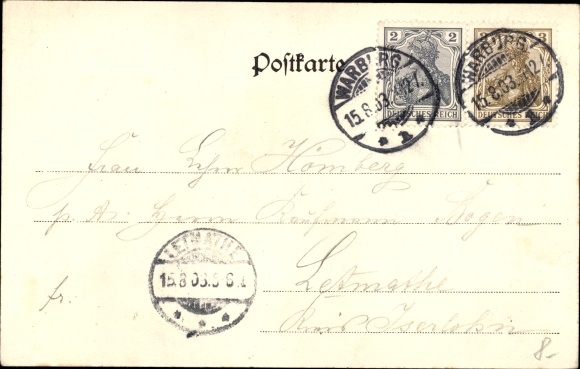 2 2 3 3
DEUTSCHES REICH DEUTSCHES REICH
WARBURG WARBURG
15.8.03. 15.8.03.
Postkarte
Frau Lehm Homberg
p. Ad: Herrn Kaufmann Hagen
Letmathe
Kreis Iserlohn
fr.
LETMATHE
15.8.03.
8.-